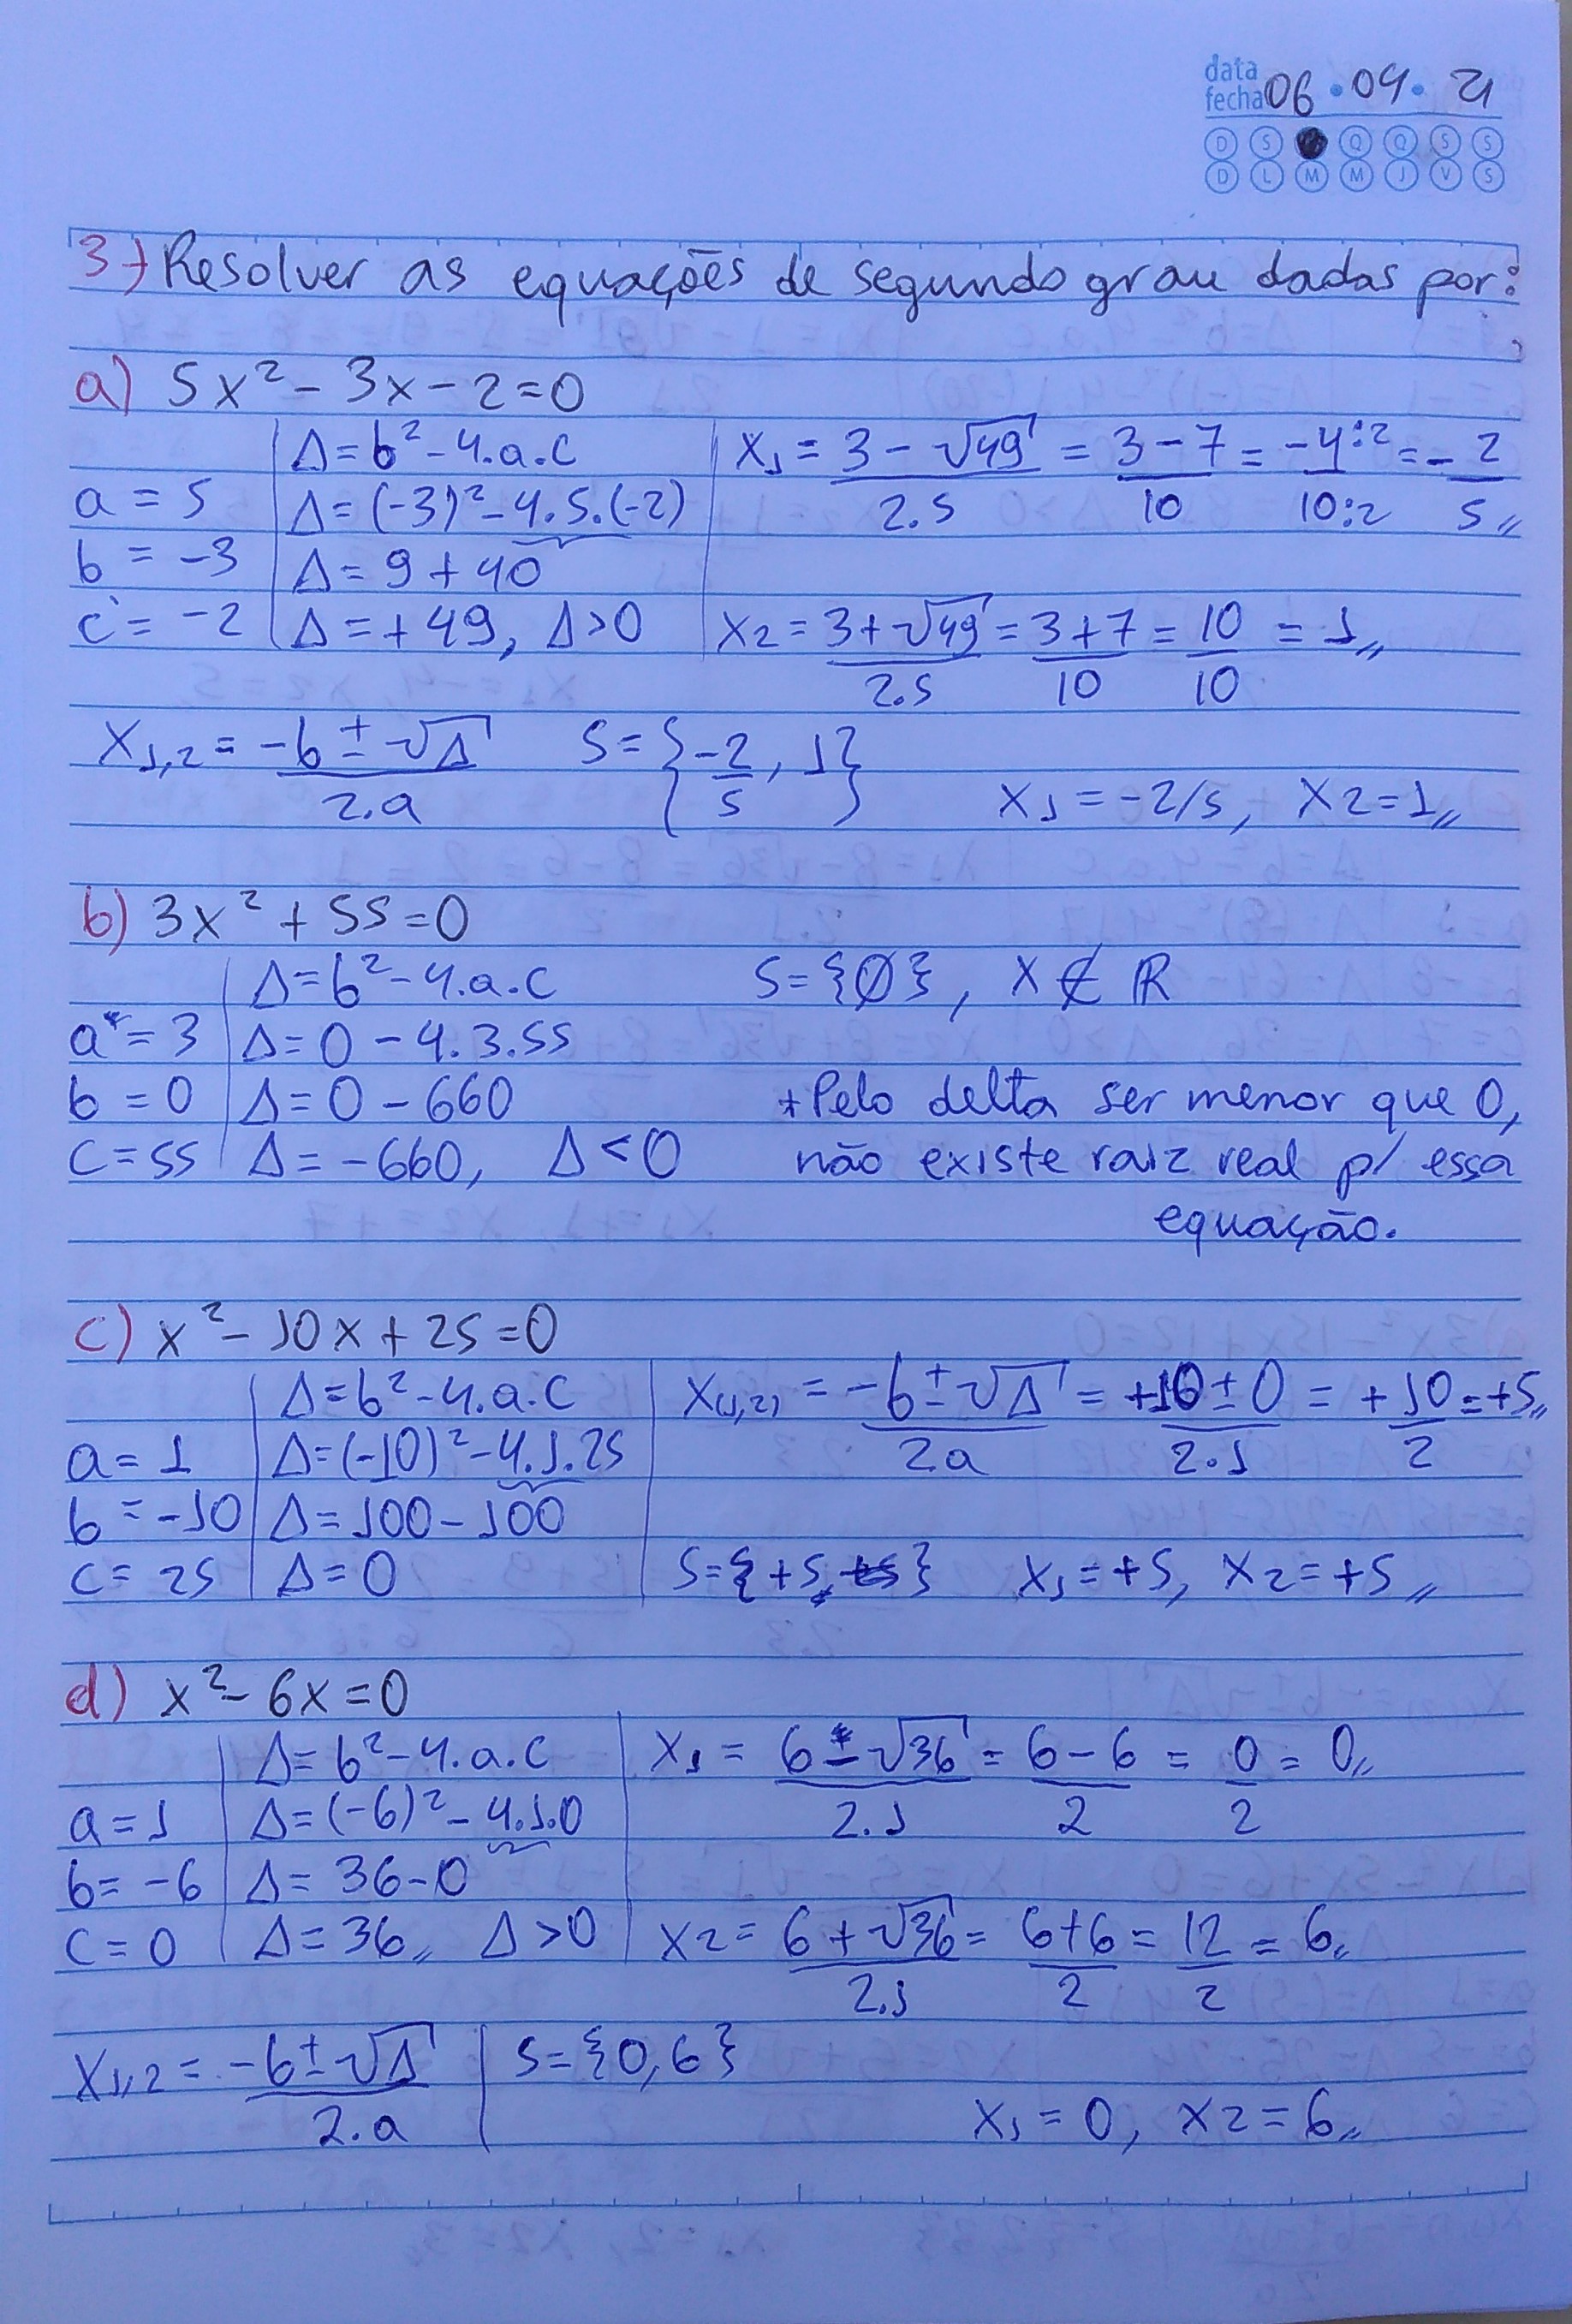 data
fecha 06 • 04 • 21
D S Q Q S S
D L M M J V S
3) Resolver as equações de segundo grau dadas por:
a) 5x² - 3x - 2 = 0
Δ = b² - 4.a.c
a = 5
Δ = (-3)² - 4.5.(-2)
b = -3
Δ = 9 + 40
c = -2
Δ = +49, Δ > 0
x₁ = 3 - √49 / 2.5 = 3 - 7 / 10 = -4:2 / 10:2 = - 2 / 5 //
x2 = 3 + √49 / 2.5 = 3 + 7 / 10 = 10 / 10 = 1 //
x₁,₂ = -b ± √Δ / 2.a
S = { -2/5 , 1 }
x₁ = -2/5, x2 = 1 //
b) 3x² + 55 = 0
Δ = b² - 4.a.c
a = 3
Δ = 0 - 4.3.55
b = 0
Δ = 0 - 660
c = 55
Δ = -660, Δ < 0
S = {∅}, x ∉ ℝ
* Pelo delta ser menor que 0,
não existe raiz real p/ essa
equação.
c) x² - 10x + 25 = 0
Δ = b² - 4.a.c
a = 1
Δ = (-10)² - 4.1.25
b = -10
Δ = 100 - 100
c = 25
Δ = 0
x(1,2) = -b ± √Δ / 2a = +10 ± 0 / 2.1 = +10 / 2 = +5 //
S = {+5} x₁ = +5, x2 = +5 //
d) x² - 6x = 0
Δ = b² - 4.a.c
a = 1
Δ = (-6)² - 4.1.0
b = -6
Δ = 36 - 0
c = 0
Δ = 36 // Δ > 0
x₁ = 6 - √36 / 2.1 = 6 - 6 / 2 = 0 / 2 = 0 //
x2 = 6 + √36 / 2.1 = 6 + 6 / 2 = 12 / 2 = 6 //
x₁,₂ = -b ± √Δ / 2.a
S = {0, 6}
x₁ = 0, x2 = 6 //